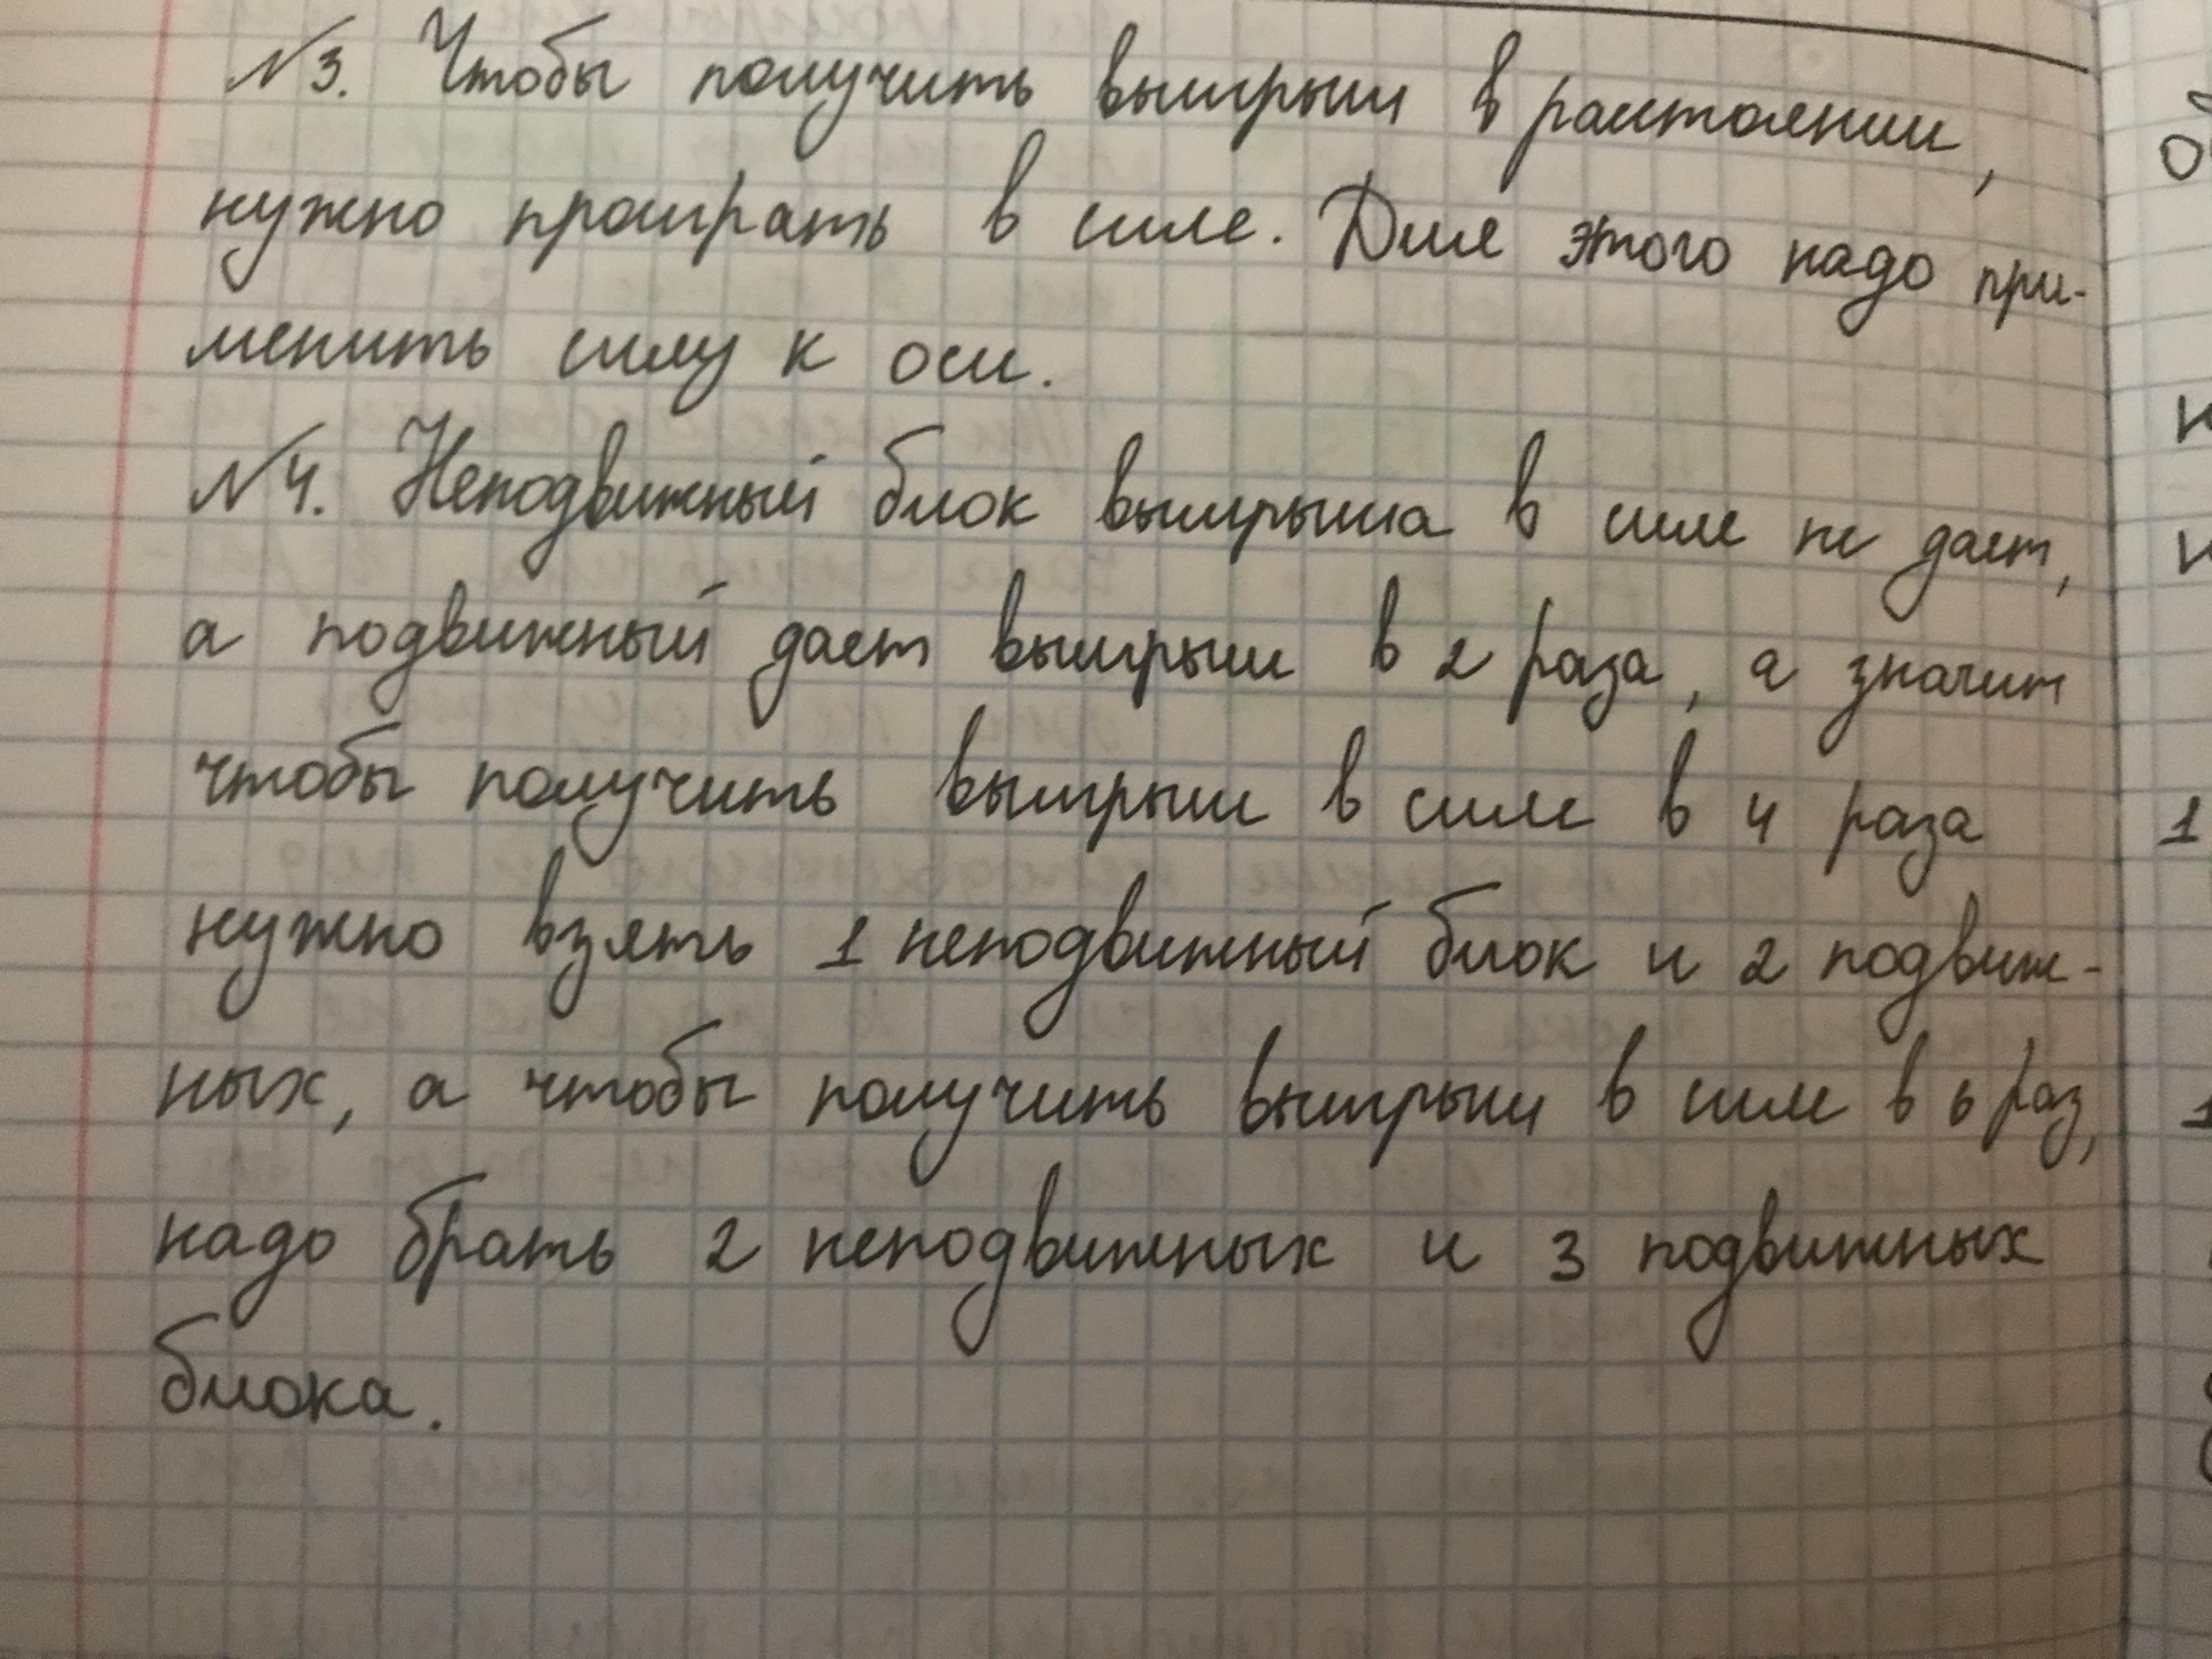 №3. Чтобы получить выигрыш в расстоянии,
нужно проиграть в силе. Для этого надо при-
менить силу к оси.
№4. Неподвижный блок выигрыша в силе не дает,
а подвижный дает выигрыш в 2 раза, а значит
чтобы получить выигрыш в силе в 4 раза
нужно взять 1 неподвижный блок и 2 подвиж-
ных, а чтобы получить выигрыш в силе в 6 раз,
надо брать 2 неподвижных и 3 подвижных
блока.